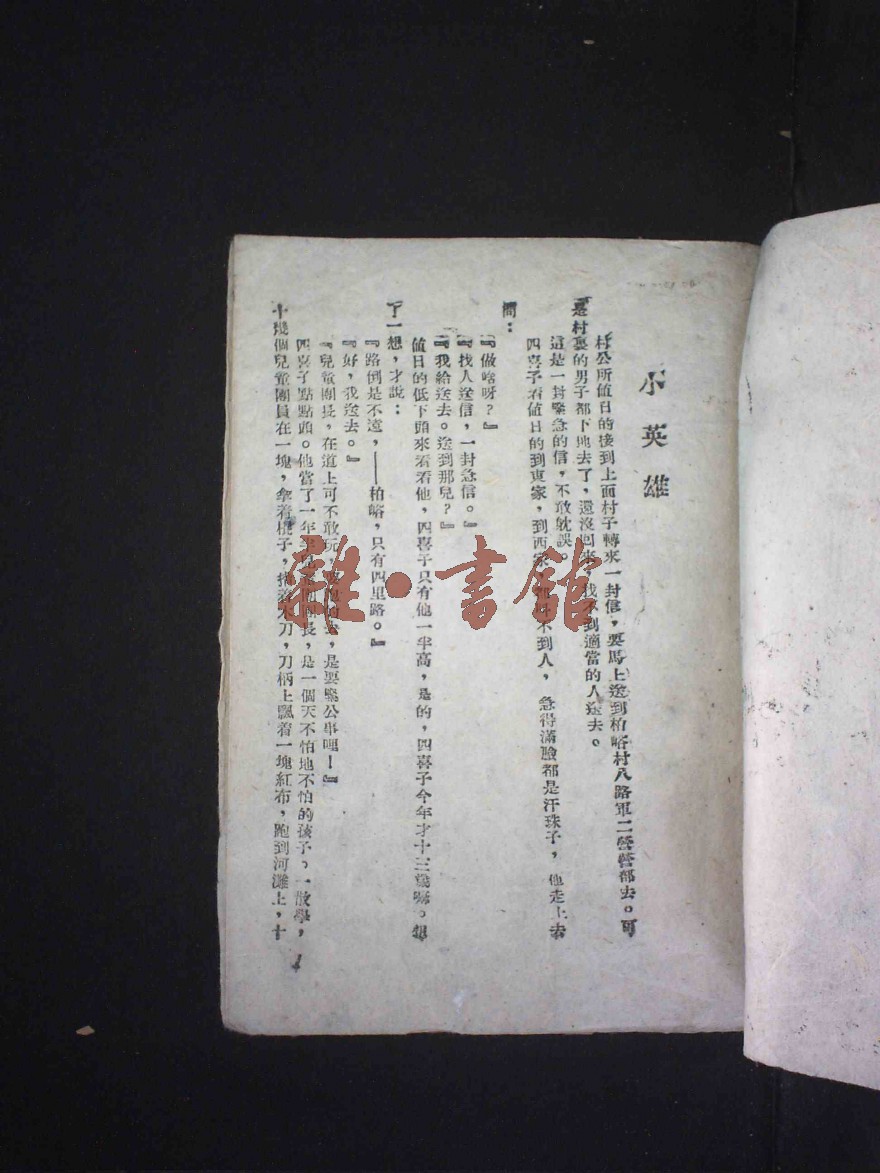 小英雄
村公所值日的接到上面村子轉來一封信，要馬上送到柏峪村八路軍二營營部去。可
是村裏的男子都下地去了，還沒回來，找不到適當的人送去。
這是一封緊急的信，不敢耽誤。
四喜子看值日的到東家，到西家，都找不到人，急得滿臉都是汗珠子，他走上去
問：
『做啥呀？』
『找人送信，一封急信。』
『我給送去。送到那兒？』
值日的低下頭來看看他，四喜子只有他一半高，是的，四喜子今年才十三歲嘛。想
了一想，才說：
『路倒是不遠，——柏峪，只有四里路。』
『好，我送去。』
『兒童團長，在道上可不敢玩，是要緊公事哩！』
四喜子點點頭。他當了一年半兒童團團長，是一個天不怕地不怕的孩子。一散學，
十幾個兒童團員在一塊，拿着棍子，木刀，刀柄上飄着一塊紅布，跑到河灘上，十
1
雜·書館